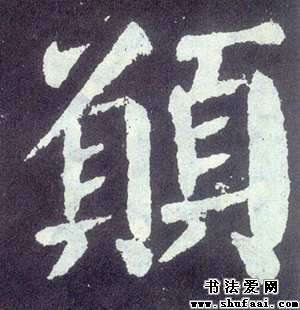 顛
书法爱网
www.shufaai.com